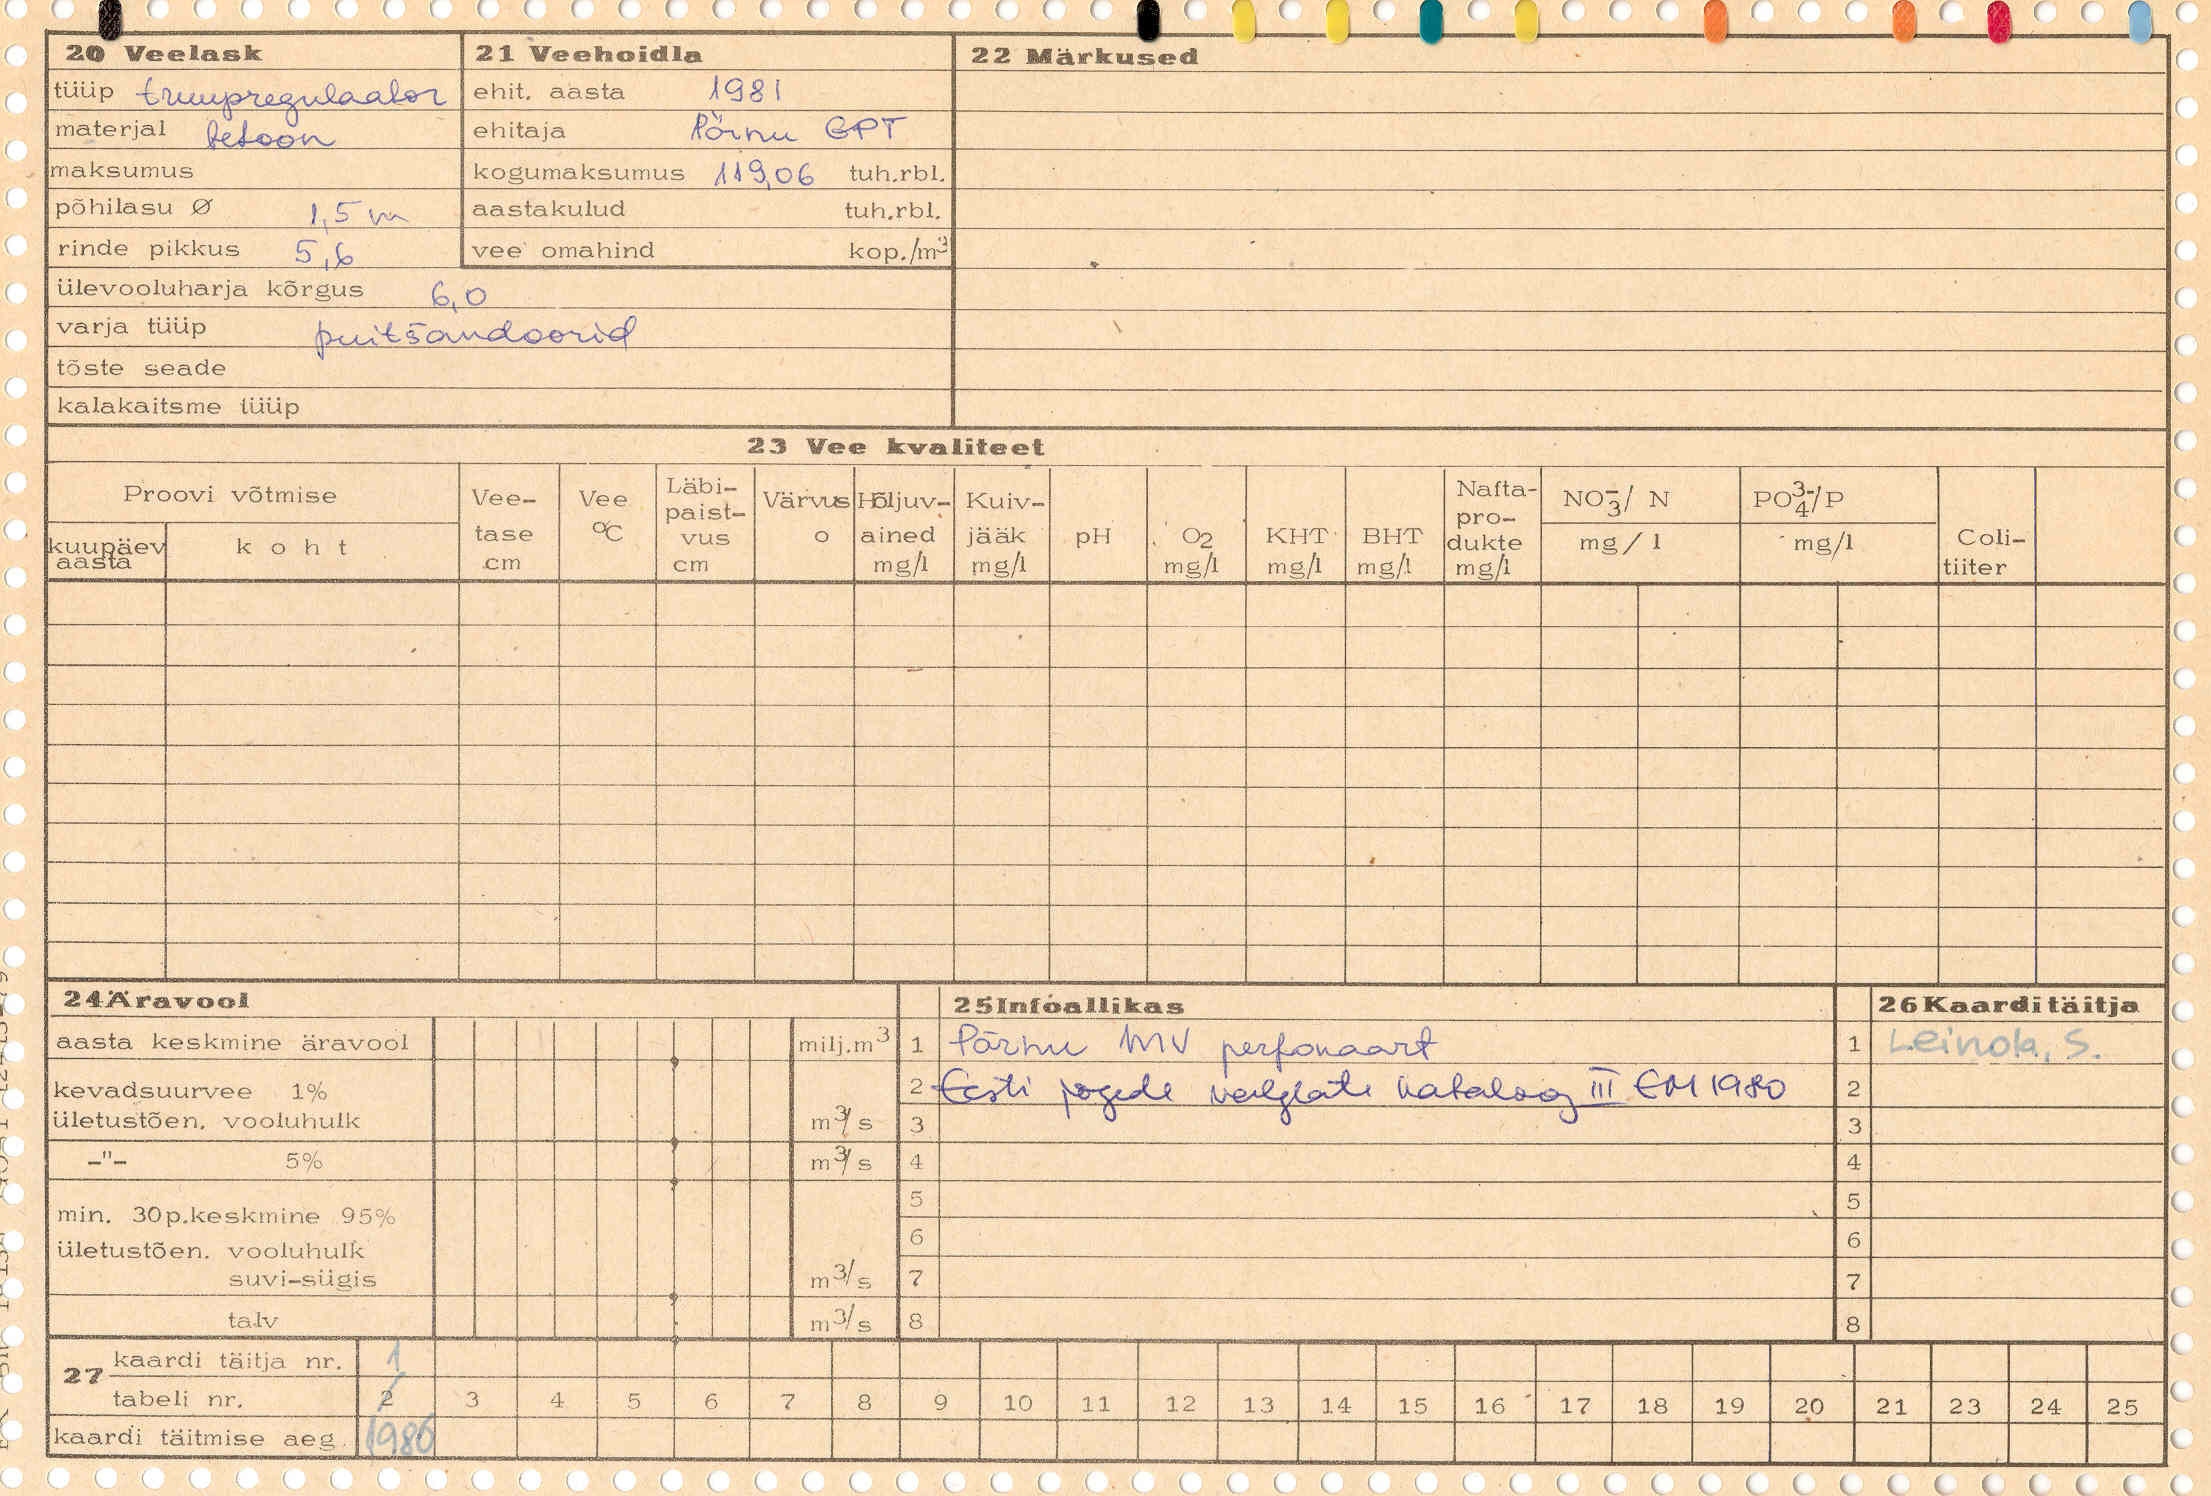 20 Veelask
tüüp truupregulaator
materjal betoon
maksumus
põhilasu Ø 1,5 m
rinde pikkus 5,6
ülevooluharja kõrgus 6,0
varja tüüp puitšandoorid
tõste seade
kalakaitsme tüüp
21 Veehoidla
ehit. aasta 1981
ehitaja Pärnu EPT
kogumaksumus 119,06 tuh.rbl.
aastakulud tuh.rbl.
vee omahind kop./m³
22 Märkused
23 Vee kvaliteet
Proovi võtmise
kuupäev aasta
koht
Vee-
tase
cm
Vee
°C
Läbi-
paist-
vus
cm
Värvus
o
Hõljuv-
ained
mg/l
Kuiv-
jääk
mg/l
pH
O₂
mg/l
KHT
mg/l
BHT
mg/l
Nafta-
pro-
dukte
mg/l
NO₃⁻/ N
mg/l
PO₄³⁻/P
mg/l
Coli-
tiiter
24 Äravool
aasta keskmine äravool milj.m³
kevadsuurvee 1%
ületustõen. vooluhulk m³/s
-"- 5% m³/s
min. 30p.keskmine 95%
ületustõen. vooluhulk
suvi-sügis m³/s
talv m³/s
25 Infoallikas
1 Pärnu MV perfokaart
2 Eesti jõgede valglate kataloog III EM 1980
3
4
5
6
7
8
26 Kaardi täitja
1 Leinola, S.
2
3
4
5
6
7
8
27 kaardi täitja nr. 1
tabeli nr. 2 3 4 5 6 7 8 9 10 11 12 13 14 15 16 17 18 19 20 21 23 24 25
kaardi täitmise aeg 1986